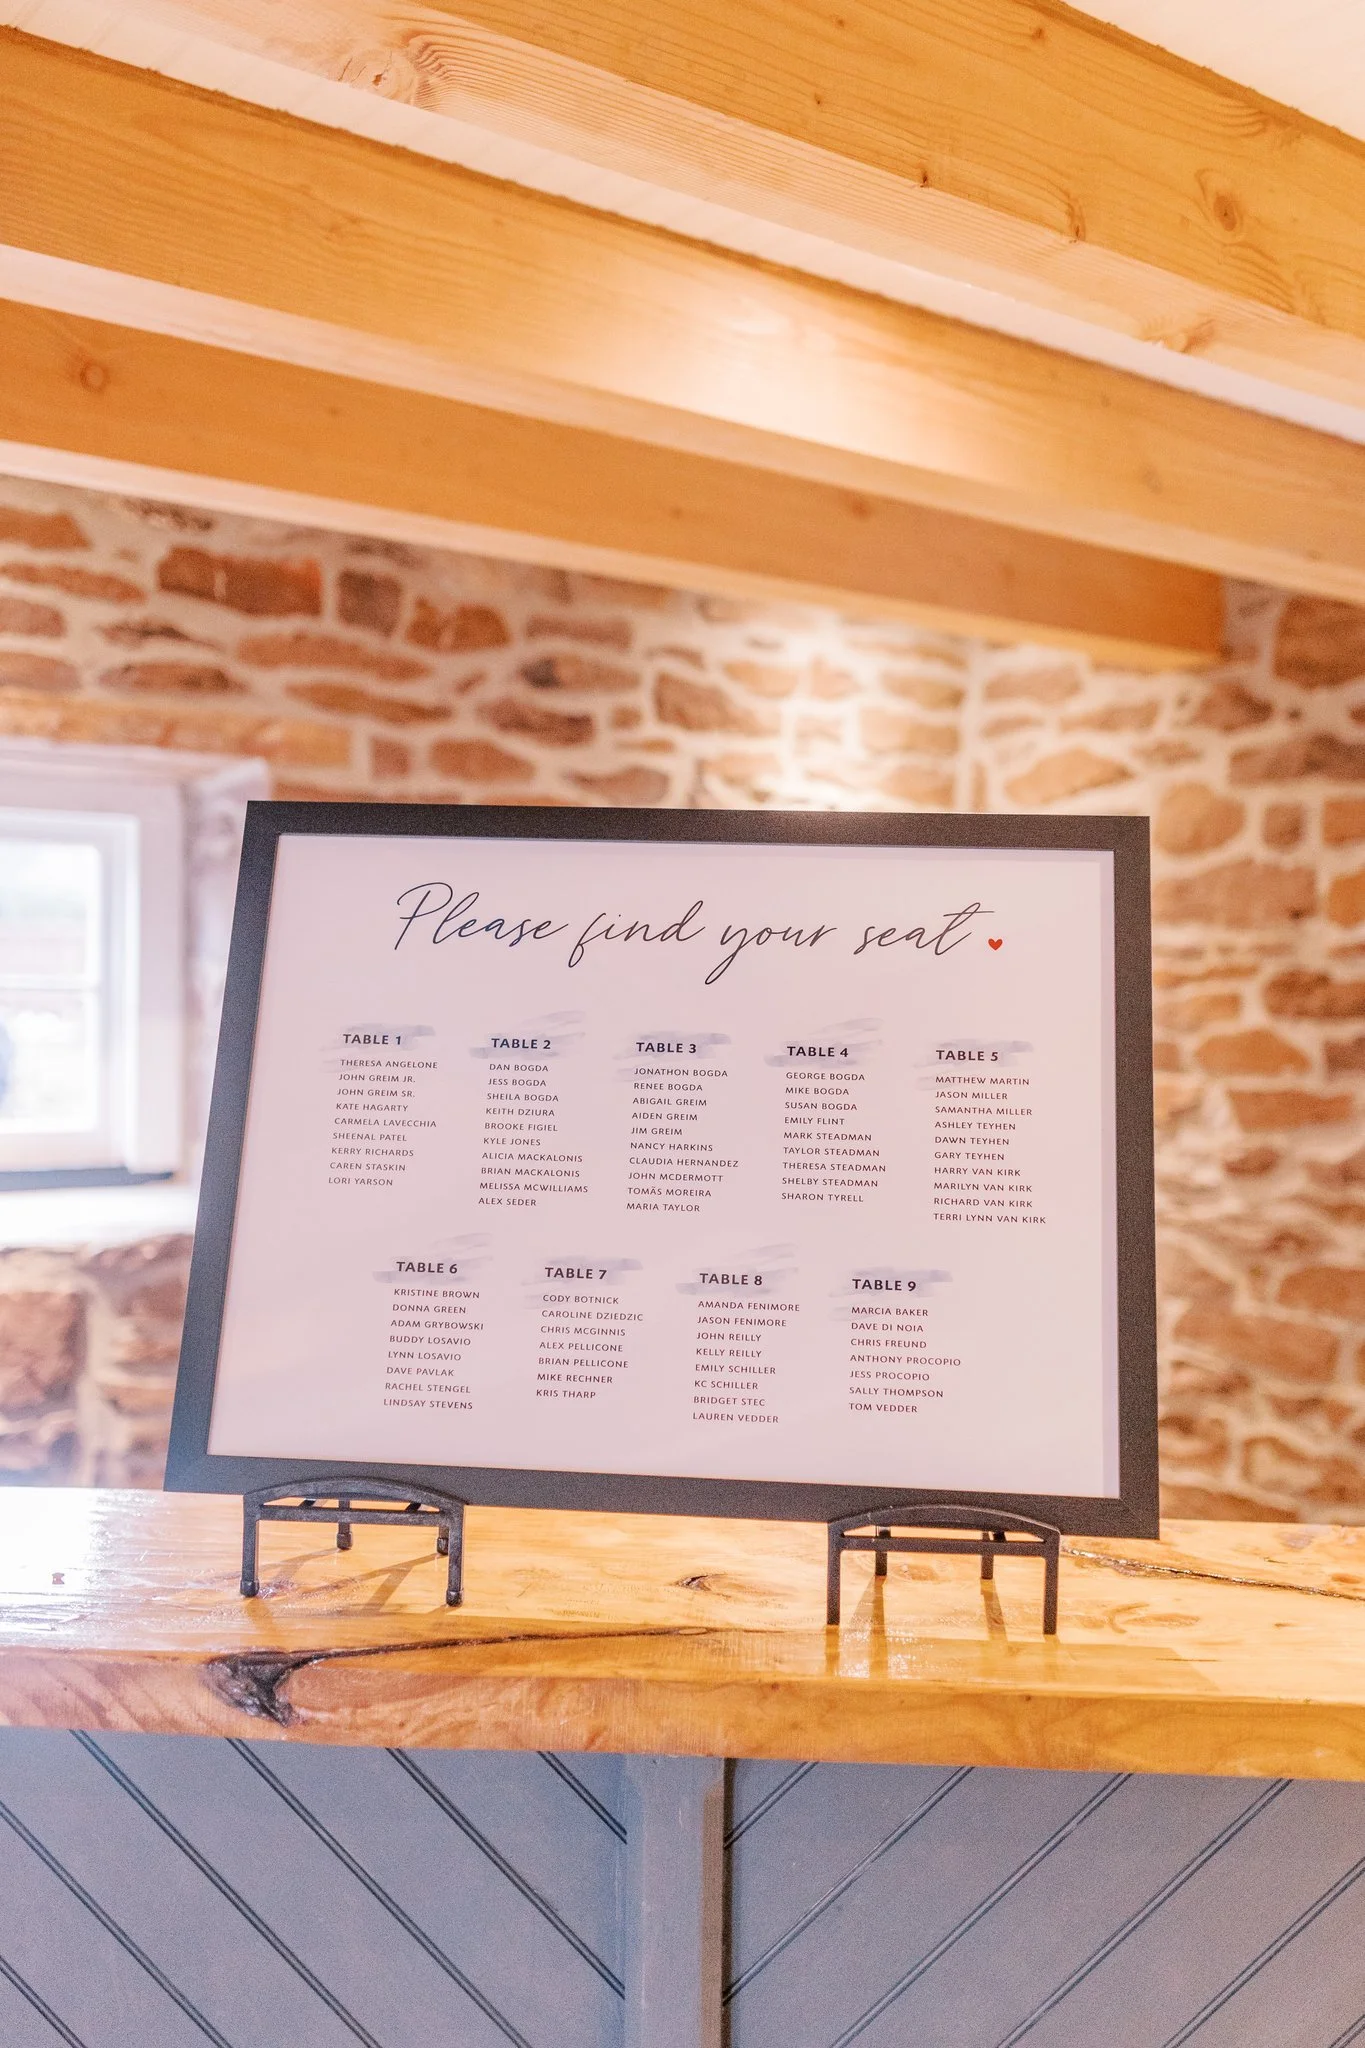 Please find your seat
TABLE 1
THERESA ANGELONE
JOHN GREIM JR.
JOHN GREIM SR.
KATE HAGARTY
CARMELA LAVECCHIA
SHEENAL PATEL
KERRY RICHARDS
CAREN STASKIN
LORI YARSON
TABLE 2
DAN BOGDA
JESS BOGDA
SHEILA BOGDA
KEITH DZIURA
BROOKE FIGIEL
KYLE JONES
ALICIA MACKALONIS
BRIAN MACKALONIS
MELISSA MCWILLIAMS
ALEX SEDER
TABLE 3
JONATHON BOGDA
RENEE BOGDA
ABIGAIL GREIM
AIDEN GREIM
JIM GREIM
NANCY HARKINS
CLAUDIA HERNANDEZ
JOHN MCDERMOTT
TOMÄS MOREIRA
MARIA TAYLOR
TABLE 4
GEORGE BOGDA
MIKE BOGDA
SUSAN BOGDA
EMILY FLINT
MARK STEADMAN
TAYLOR STEADMAN
THERESA STEADMAN
SHELBY STEADMAN
SHARON TYRELL
TABLE 5
MATTHEW MARTIN
JASON MILLER
SAMANTHA MILLER
ASHLEY TEYHEN
DAWN TEYHEN
GARY TEYHEN
HARRY VAN KIRK
MARILYN VAN KIRK
RICHARD VAN KIRK
TERRI LYNN VAN KIRK
TABLE 6
KRISTINE BROWN
DONNA GREEN
ADAM GRYBOWSKI
BUDDY LOSAVIO
LYNN LOSAVIO
DAVE PAVLAK
RACHEL STENGEL
LINDSAY STEVENS
TABLE 7
CODY BOTNICK
CAROLINE DZIEDZIC
CHRIS MCGINNIS
ALEX PELLICONE
BRIAN PELLICONE
MIKE RECHNER
KRIS THARP
TABLE 8
AMANDA FENIMORE
JASON FENIMORE
JOHN REILLY
KELLY REILLY
EMILY SCHILLER
KC SCHILLER
BRIDGET STEC
LAUREN VEDDER
TABLE 9
MARCIA BAKER
DAVE DI NOIA
CHRIS FREUND
ANTHONY PROCOPIO
JESS PROCOPIO
SALLY THOMPSON
TOM VEDDER